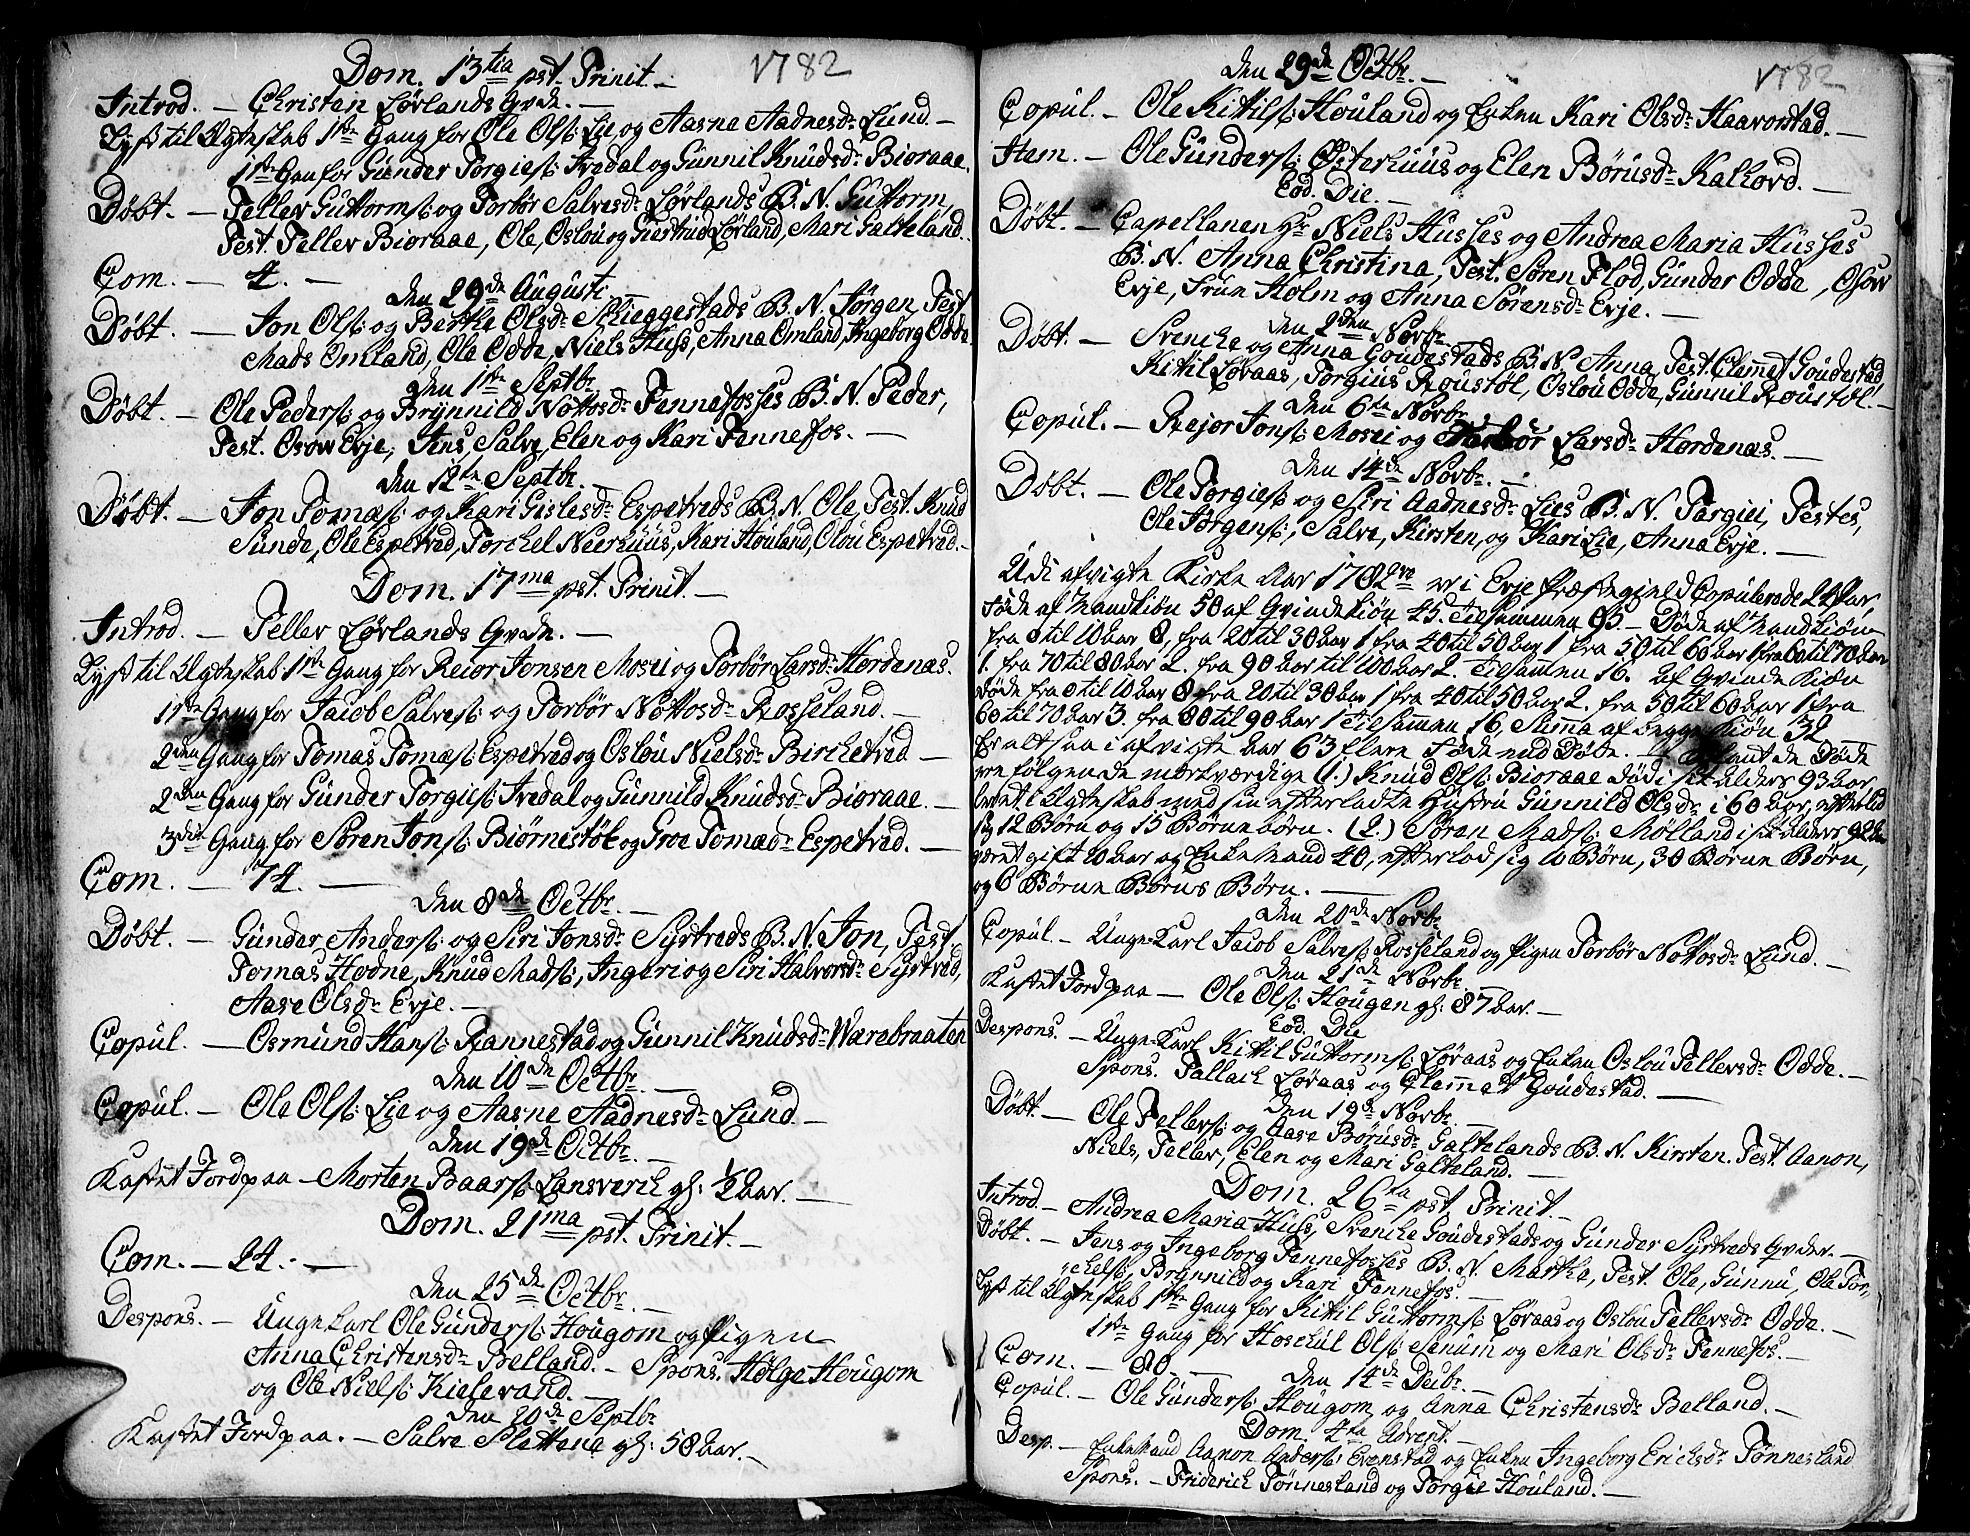 Dom. 13tia pst. Trinit. — 1782
Introd. — Christen Lørlands Qvde. —
Lyst til Ægteskab 1ste Gang for Ole Ols: Lie og Aasne Aadnesdr Lund. —
1ste Gang for Gunder Torgies: Fredal og Gunnil Knudsdr Bioraae.
Døbt. — Teller Guttorms: og Torbør Salvesdr Lørlands B. N. Guttorm,
Test. Teller Bioraae, Ole, Oslou og Giertrud Lørland, Mari Galteland.
Com. — 4. —
den 29de Augusti —
Døbt. — Jon Ols: og Berthe Olsdr Skieggestads B. N. Jørgen, Test.
Mads Omland, Ole Odde, Niels Huss, Anna Omland, Ingeborg Odde.
den 1ste Septbr. —
Døbt. — Ole Peders: og Brynnild Nottosdr Fennefosses B. N. Peder,
Test. Osow Evje, Jens, Salve, Elen og Kari Fennefos. —
den 12te Septbr. —
Døbt. — Jon Tomæs: og Kari Gislesdr Espetveds B. N. Ole, Test. Knud
Sunde, Ole Espetved, Torchel Neerhuus, Kari Houland, Olou Espetved. —
Dom. 17ma pst. Trinit. —
Introd. — Teller Lørlands Qvde. —
Lyst til Ægteskab 1ste Gang for Reior Jonsen Mosei og Torbør Larsdr Hordenæs.
1ste Gang for Jacob Salves: og Torbør Nottosdr Rosseland. —
2den Gang for Tomas Tomæs: Espetved og Oslou Nielsdr Birchetved —
2den Gang for Gunder Torgies: Fredal og Gunnild Knudsdr Bioraae. —
3die Gang for Søren Jons: Biørnestøl og Groe Tomædr Espetved. —
Com. — 74. —
den 8de Octbr. —
Døbt. — Gunder Anders: og Siri Jonsdr Syrtveds B. N. Jon, Test.
Tomas Hodne, Knud Mads:, Ingeri og Siri Halvorsdr Syrtved,
Aase Olsdr Evje. —
Copul. — Osmund Hans: Rannestad og Gunnil Knudsdr Værebraaten
den 10de Octbr. —
Copul. — Ole Ols: Lie og Aasne Aadnesdr Lund. —
den 19de Octbr. —
Kastet Jord paa — Morten Baars: Lansverch gl: 1/2 Aar. —
Dom. 21ma pst. Trinit. —
Com. — 24. —
den 25de Octbr. —
Despons. — Unge Karl Ole Gunders: Hougom og Pigen
Anna Christensdr Belland. — Spons. Helge Hougom
og Ole Niels: Kielevand. —
den 20de Septbr.
Kastet Jord paa. — Salve Slettene gl: 58 Aar. —
den 29de Octbr. — 1782
Copul. — Ole Kittils: Houland og Enken Kari Olsdr Haavorstad. —
Item. — Ole Gunders: Østerhuus og Elen Børusdr Kalhovd. —
Eod. Die. —
Døbt. — Capellanen Hr Niels Husses og Andrea Maria Husses
B. N. Anna Christina, Test. Søren Flod, Gunder Odde, Osow
Evje, Frue Holm og Anna Sørensdr Evje. —
den 2den Novbr.
Døbt. — Svenche og Anna Goudestads B. N. Anna, Test. Clemet Goudestad
Kittil Løvaas, Torgius Roustøl, Oslou Odde, Gunnil Roustøl. —
den 6te Novbr.
Copul. — Rejor Jons: Mosei og Torbør Larsdr Hordenæs. —
den 14de Novbr. —
Døbt. — Ole Torgies: og Siri Aadnesdr Lies B. N. Targiei, Testes,
Ole Jørgens:, Salve, Kirsten, og Kari Lie, Anna Evje. —
Udi afvigte Kirke Aar 1782 er i Evje Præstegield Copulerede 24 Par,
Føde af Mandkiøn 50 af Qvindekiøn 45. Tilsammen 95. — Døde af Mandkiøn
fra 0 til 10 Aar 8, fra 20 til 30 Aar 1 fra 40 til 50 Aar 1 fra 50 til 60 Aar 1 fra 60 til 70 Aar
1. fra 70 til 80 Aar 2. fra 90 Aar til 100 Aar 2. Tilsamen 16. Af Qvinde Kiøn
Døde fra 0 til 10 Aar 8 fra 20 til 30 Aar 1 fra 40 til 50 Aar 2. fra 50 til 60 Aar 1 fra
60 til 70 Aar 3. fra 80 til 90 Aar 1 Tilsamen, 16, Suma af begge Kiøn 32
Er altsaa i afvigte Aar 63 flere Føde end Døde. iblant de Døde
ere følgende merkværdige (1.) Knud Ols: Bioraae Død i sit Alders 93 Aar
levet i Ægteskab med sin efterladte Hustru Gunnild Olsdr i 60 Aar, efterlod
sig 12 Børn og 15 Børnebørn. (2.) Søren Mads: Mølland i sit Alders 92 Aar
været gift 20 Aar og Enkemand 40, efterlod sig 10 Børn, 30 Børne Børn,
og 6 Børne Børns Børn. —
den 20de Novbr.
Copul. — Unge Karl Jacob Salves: Rosseland og Pigen Torbør Nottosdr Lund. —
den 21de Novbr.
Kastet Jord paa — Ole Ols: Hougen gl: 87 Aar. —
Eod. Die
Despons. — Unge Karl Kittil Guttorms: Løvaas og Enken Oslou Tellersdr Odde. —
Spons. Tallach Løvaas og Clemet Goudestad. —
den 19de Novbr.
Døbt — Ole Tellers: og Aase Børusdr Galtelands B. N. Kirsten. Test. Aanon,
Niels, Teller, Elen og Mari Galteland. —
Dom. 26ta pst. Trinit. —
Introd. — Andrea Maria Huss, Svenche Goudestads og Gunder Syrtveds Qvder. —
Døbt. — Jens og Ingeborg Fennefosses B. N. Marthe, Test. Ole, Gunnu, Ole Tor-
chels:, Brynnild og Kari Fennefos. —
Lyst til Ægteskab 1ste Gang for Kittil Guttorms: Løvaas og Oslou Tellersdr Odde. —
1ste Gang for Hoschul Ols: Senum og Mari Olsdr Fennefos. —
Com. — 80. —
den 14de Decbr. —
Copul. — Ole Gunders: Hougom og Anna Christensdr Belland. —
Dom. 4ta Advent. —
Desp. — Enkemand Aanon Anders: Evenstad og Enken Ingeborg Erichsdr Tønnesland
Spons. — Friderich Tønnesland og Torgie Houland. —